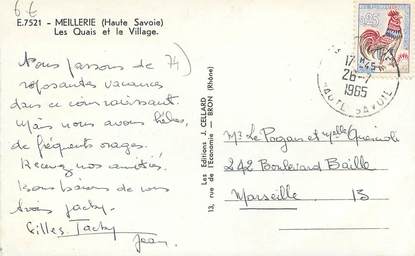 6 €
E.7521 - MEILLERIE (Haute Savoie)
Les Quais et le Village.
74)
Nous passons de
reposantes vacances
dans ce coin ravissant.
Mais nous avons hélas,
de fréquents orages.
Recevez nos amitiés.
Bons baisers de nous
trois Jacky.
Gilles Jacky
Jean.
Les Editions J. CELLARD
13, rue de l'Economie - BRON (Rhône)
0,25
17 H45
26-7
1965
HAUTE SAVOIE
Mr Le et Melle
242 Boulevard Baille
Marseille 13